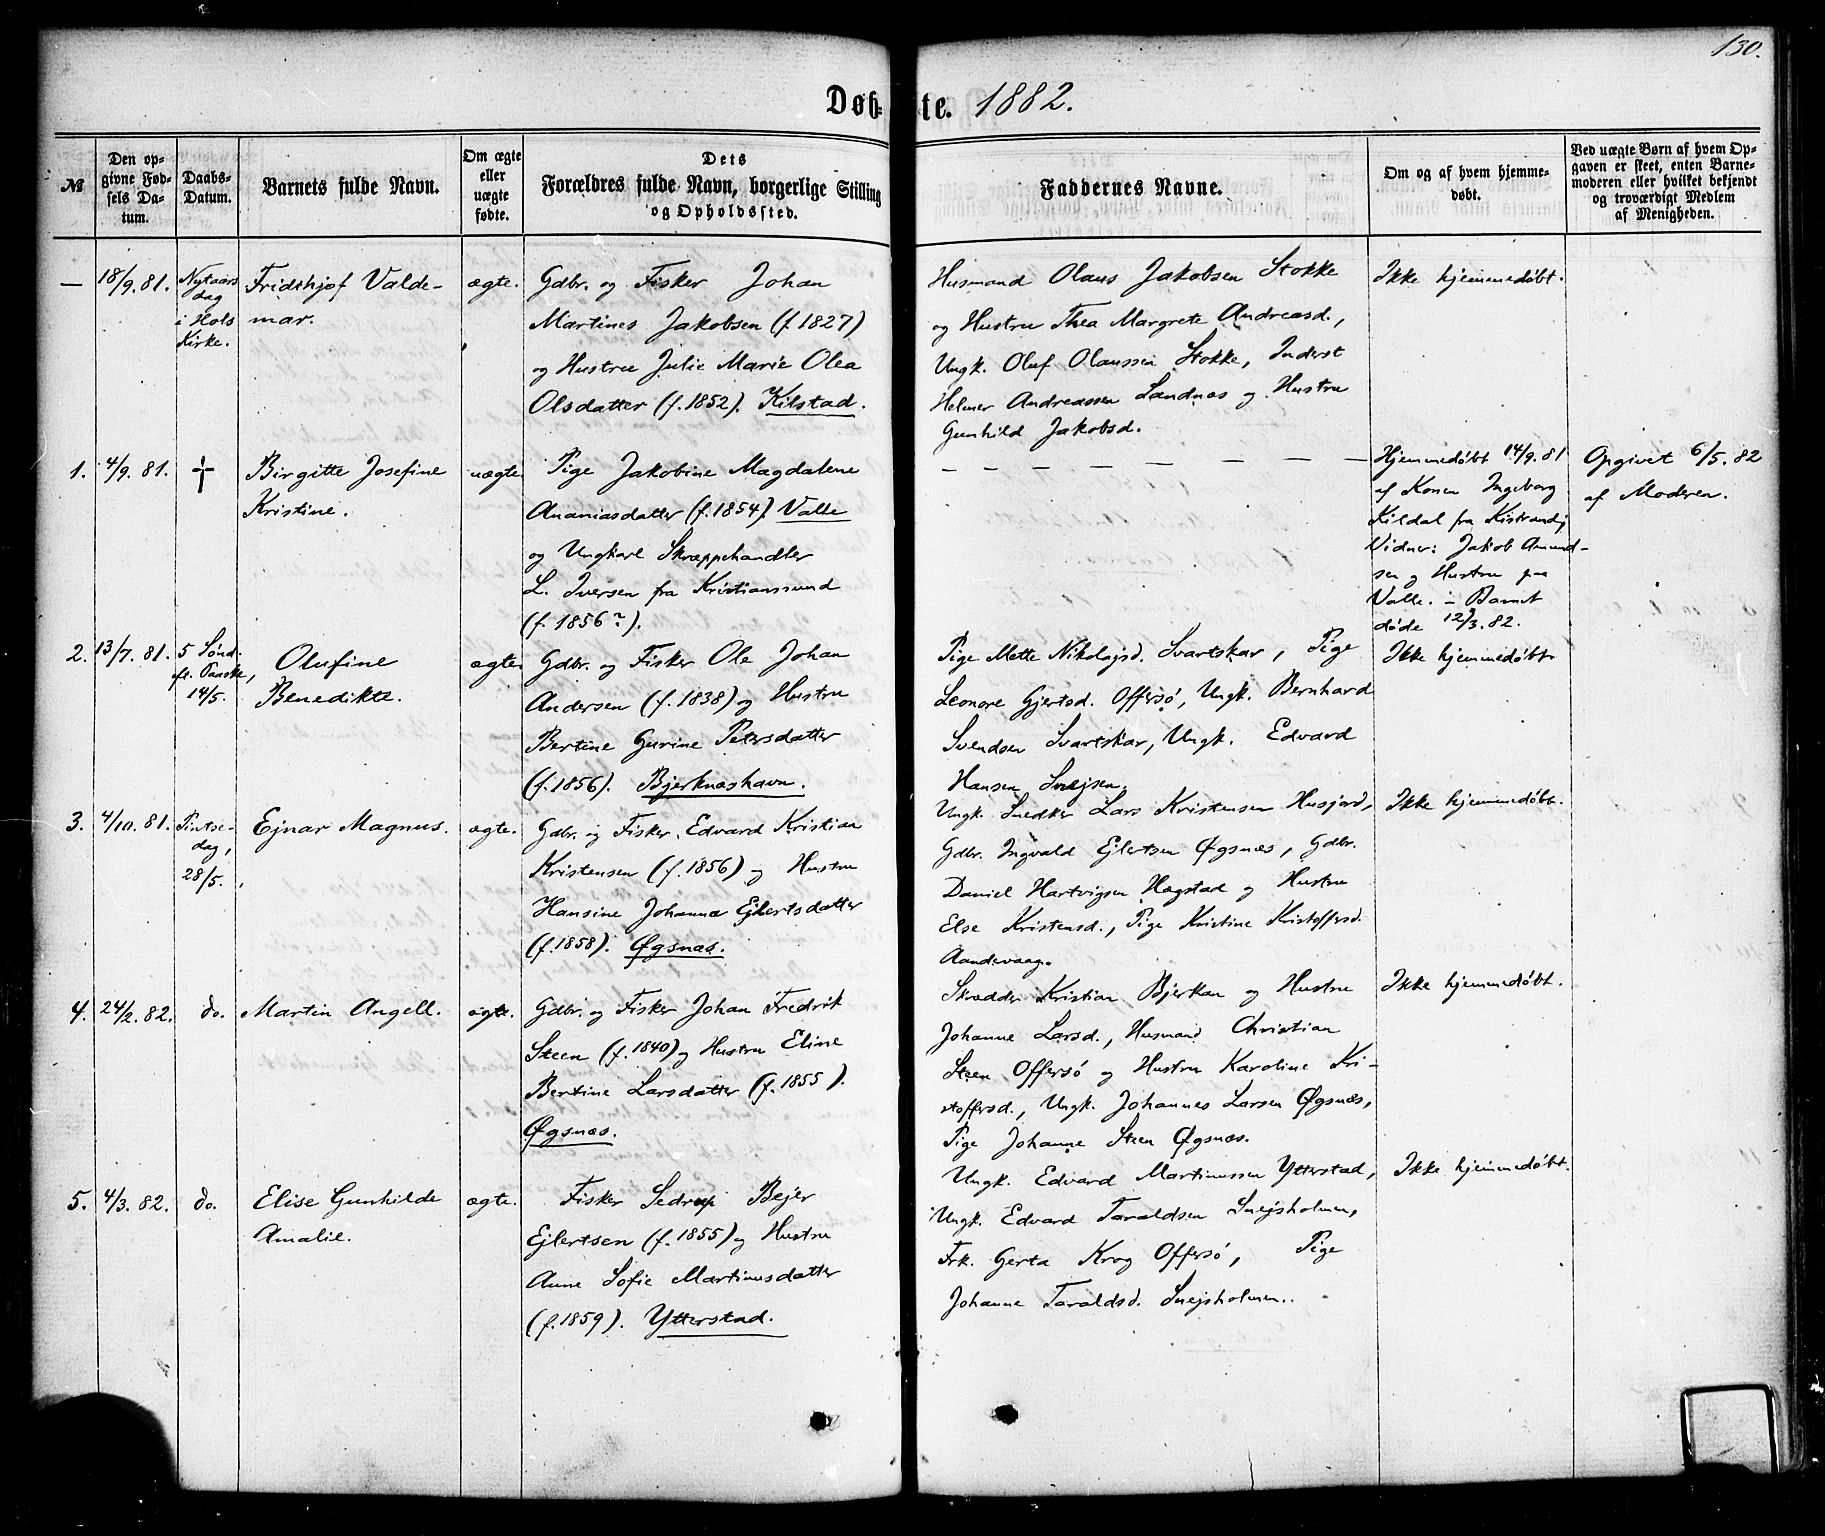 130.
Døb-te. 1882.
№
Den op-
givne Fød-
sels Da-
tum.
Daabs-
Datum.
Barnets fulde Navn.
Om ægte
eller
uægte
fødte.
Dets
Forældres fulde Navn, borgerlige Stilling
og Opholdssted.
Faddernes Navne.
Om og af hvem hjemme-
døbt.
Ved uægte Børn af hvem Op-
gaven er skeet, enten Barne-
moderen eller hvilket bekjendt
og troværdigt Medlem
af Menigheden.
—
18/9.81.
Nytaars
dag
i Hols
Kirke.
Fridthjof Valde-
mar.
ægte.
Gdbr. og Fisker Johan
Martines Jakobsen (f.1827)
og Hustru Julie Marie Olea
Olsdatter (f.1852). Kilstad.
Husmand Olaus Jakobsen Stokke
og Hustru Thea Margrete Andreasd.,
Ungk. Oluf Olaussen Stokke, Inderst
Helmer Andreassen Sandnæs og Hustru
Gunhild Jakobsd.
Ikke hjemmedøbt.
1.
4/9.81.
†
Birgitte Josefine
Kristine.
uægte
Pige Jakobine Magdalene
Ananiasdatter (f.1854). Valle
og Ungkarl Skræppehandler
L. Iversen fra Kristianssund
(f.1856?).
— — — — — — — — —
Hjemmedøbt 14/9.81
af Konen Ingeborg
Kildal fra Kistrand;
Vidner: Jakob Amund-
sen og Hustru paa
Valle. – Barnet
døde 12/3.82.
Opgivet 6/5.82
af Moderen.
2.
13/7.81.
5 Sønd.
ef. Paaske,
14/5.
Olufine
Benedikte.
ægte
Gdbr. og Fisker Ole Johan
Andersen (f.1838) og Hustru
Bertine Gurine Petersdatter
(f.1856). Bjerknæshavn.
Pige Mette Nikolajsd. Svartskar, Pige
Leonore Gjertsd. Offersø, Ungk. Bernhard
Svendsen Svartskar, Ungk. Edvard
Hansen Snejsen.
Ikke hjemmedøbt
3.
4/10.81.
Pintse-
dag,
28/5.
Ejnar Magnus.
ægte.
Gdbr. og Fisker Edvard Kristian
Kristensen (f.1856) og Hustru
Hansine Johanna Ejlertsdatter
(f.1858). Øgsnæs.
Ungk. Snedker Lars Kristensen Husjord,
Gdbr. Ingvald Ejlertsen Øgsnæs, Gdbr.
Daniel Hartvigsen Hægstad og Hustru
Else Kristensd., Pige Kristine Kristoffersd.
Aandevaag.
Ikke hjemmedøbt.
4.
24/2.82.
do.
Martin Angell.
ægte.
Gdbr. og Fisker Johan Fredrik
Steen (f.1840) og Hustru Eline
Bertine Larsdatter (f.1855).
Øgsnæs.
Skrædder Kristian Bjerkan og Hustru
Johanne Larsd., Husmand Christian
Steen Offersø og Hustru Karoline Kri-
stoffersd., Ungk. Johannes Larsen Øgsnæs,
Pige Johanne Steen Øgsnæs.
Ikke hjemmedøbt.
5.
4/3.82.
do.
Elise Gunhilde
Amalie.
ægte.
Fisker Sedrup Bejer
Ejlertsen (f.1855) og Hustru
Anne Sofie Martinusdatter
(f.1859). Ytterstad.
Ungk. Edvard Martinussen Ytterstad,
Ungk. Edvard Taraldsen Snejsholmen,
Frk. Gerta Krog Offersø, Pige
Johanne Taraldsd. Snejsholmen.
Ikke hjemmedøbt.